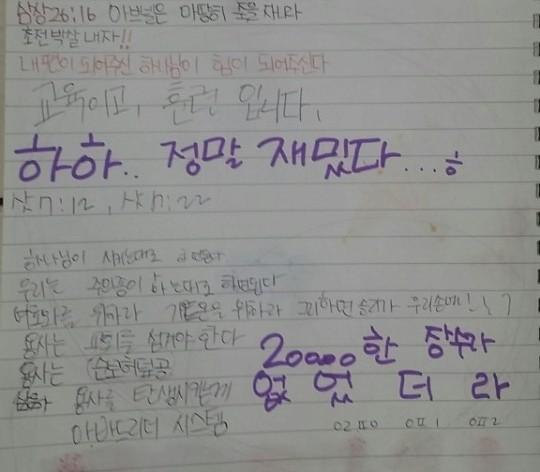 삼상26:16 아브넬은 마땅히 죽을 자니라
초전박살 내자!!
내편이 되어주신 하나님이 힘이 되어주신다
교육이고, 훈련 입니다.
하하.. 정말 재밌다...ㅎ
삿7:12, 삿7:22
하나님이 시키는대로
우리는 주의종이 하는대로 하면된다
여호와를 위하라 기드온을 위하라 그리하면 승리가 우리손에!
용사는 섬겨야 한다
용사는
용사를 탄생시키는게
아바드리더 시스템
20000한 장수라
없었더라